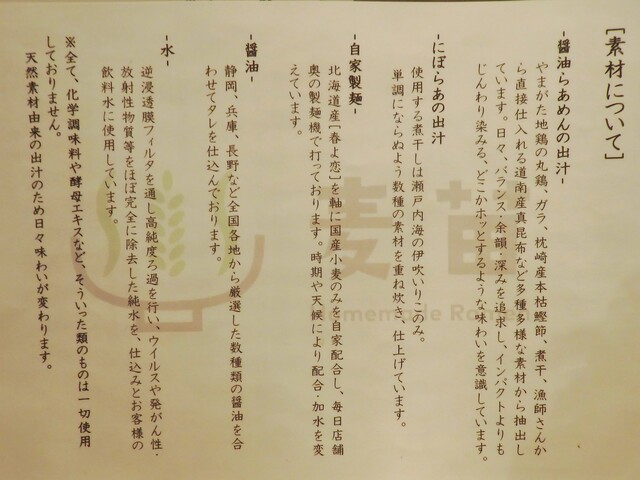 [素材について]
-醤油らあめんの出汁-
やまがた地鶏の丸鶏、ガラ、枕崎産本枯鰹節、煮干、漁師さんか
ら直接仕入れる道南産真昆布など多種多様な素材から抽出し
ています。日々、バランス・余韻・深みを追求し、インパクトよりも
じんわり染みる、どこかホッとするような味わいを意識しています。
-にぼらあの出汁
使用する煮干しは瀬戸内海の伊吹いりこのみ。
単調にならぬよう数種の素材を重ね炊き、仕上げています。
-自家製麺-
北海道産[春よ恋]を軸に国産小麦のみを自家配合し、毎日店舗
奥の製麺機で打っております。時期や天候により配合・加水を変
えています。
-醤油-
静岡、兵庫、長野など全国各地から厳選した数種類の醤油を合
わせてタレを仕込んでおります。
-水-
逆浸透膜フィルタを通し高純度ろ過を行い、ウイルスや発がん性・
放射性物質等をほぼ完全に除去した純水を、仕込みとお客様の
飲料水に使用しています。
※全て、化学調味料や酵母エキスなど、そういった類のものは一切使用
しておりません。
天然素材由来の出汁のため日々味わいが変わります。
麦苗
Homemade Ramen